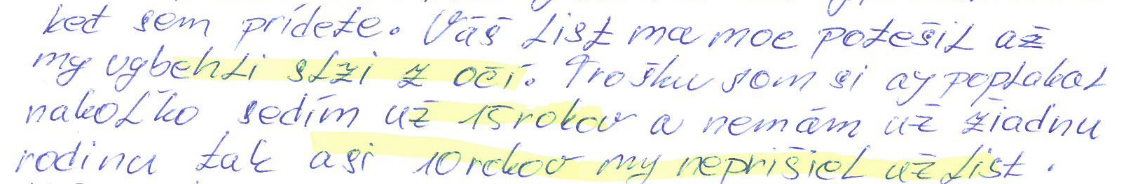 keď sem prídete. Váš list ma moc potešil až
my vybehli slzi z očí. Trošku som si ay poplakal
nakoľko sedím už 15 rokov a nemám už žiadnu
rodinu tak asi 10 rokov my neprišiel už list.